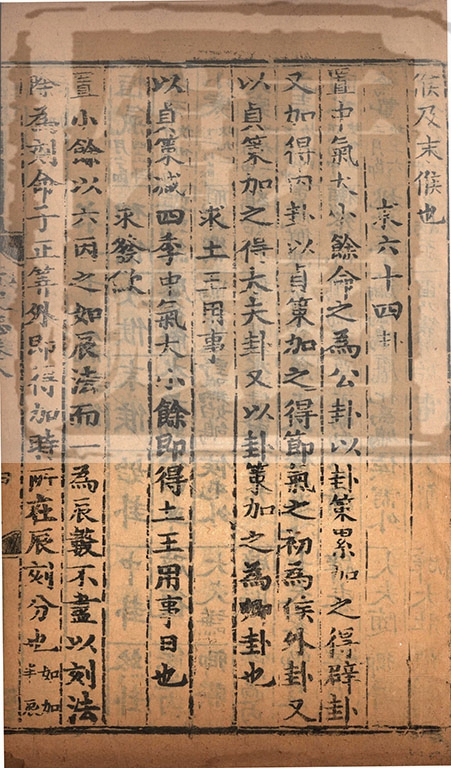 候及末候也
求六十四卦
置中氣大小餘命之為公卦以卦策累加之得辟卦
又加得内卦以貞策加之得節氣之初為侯外卦又
以貞策加之得大夫卦又以卦策加之為卿卦也
求土王用事
以貞策減四季中氣大小餘即得土王用事日也
求發歛
置小餘以六因之如辰法而一為辰數不盡以刻法
除為刻命子正筭外即得加時所在辰刻分也如加
半辰